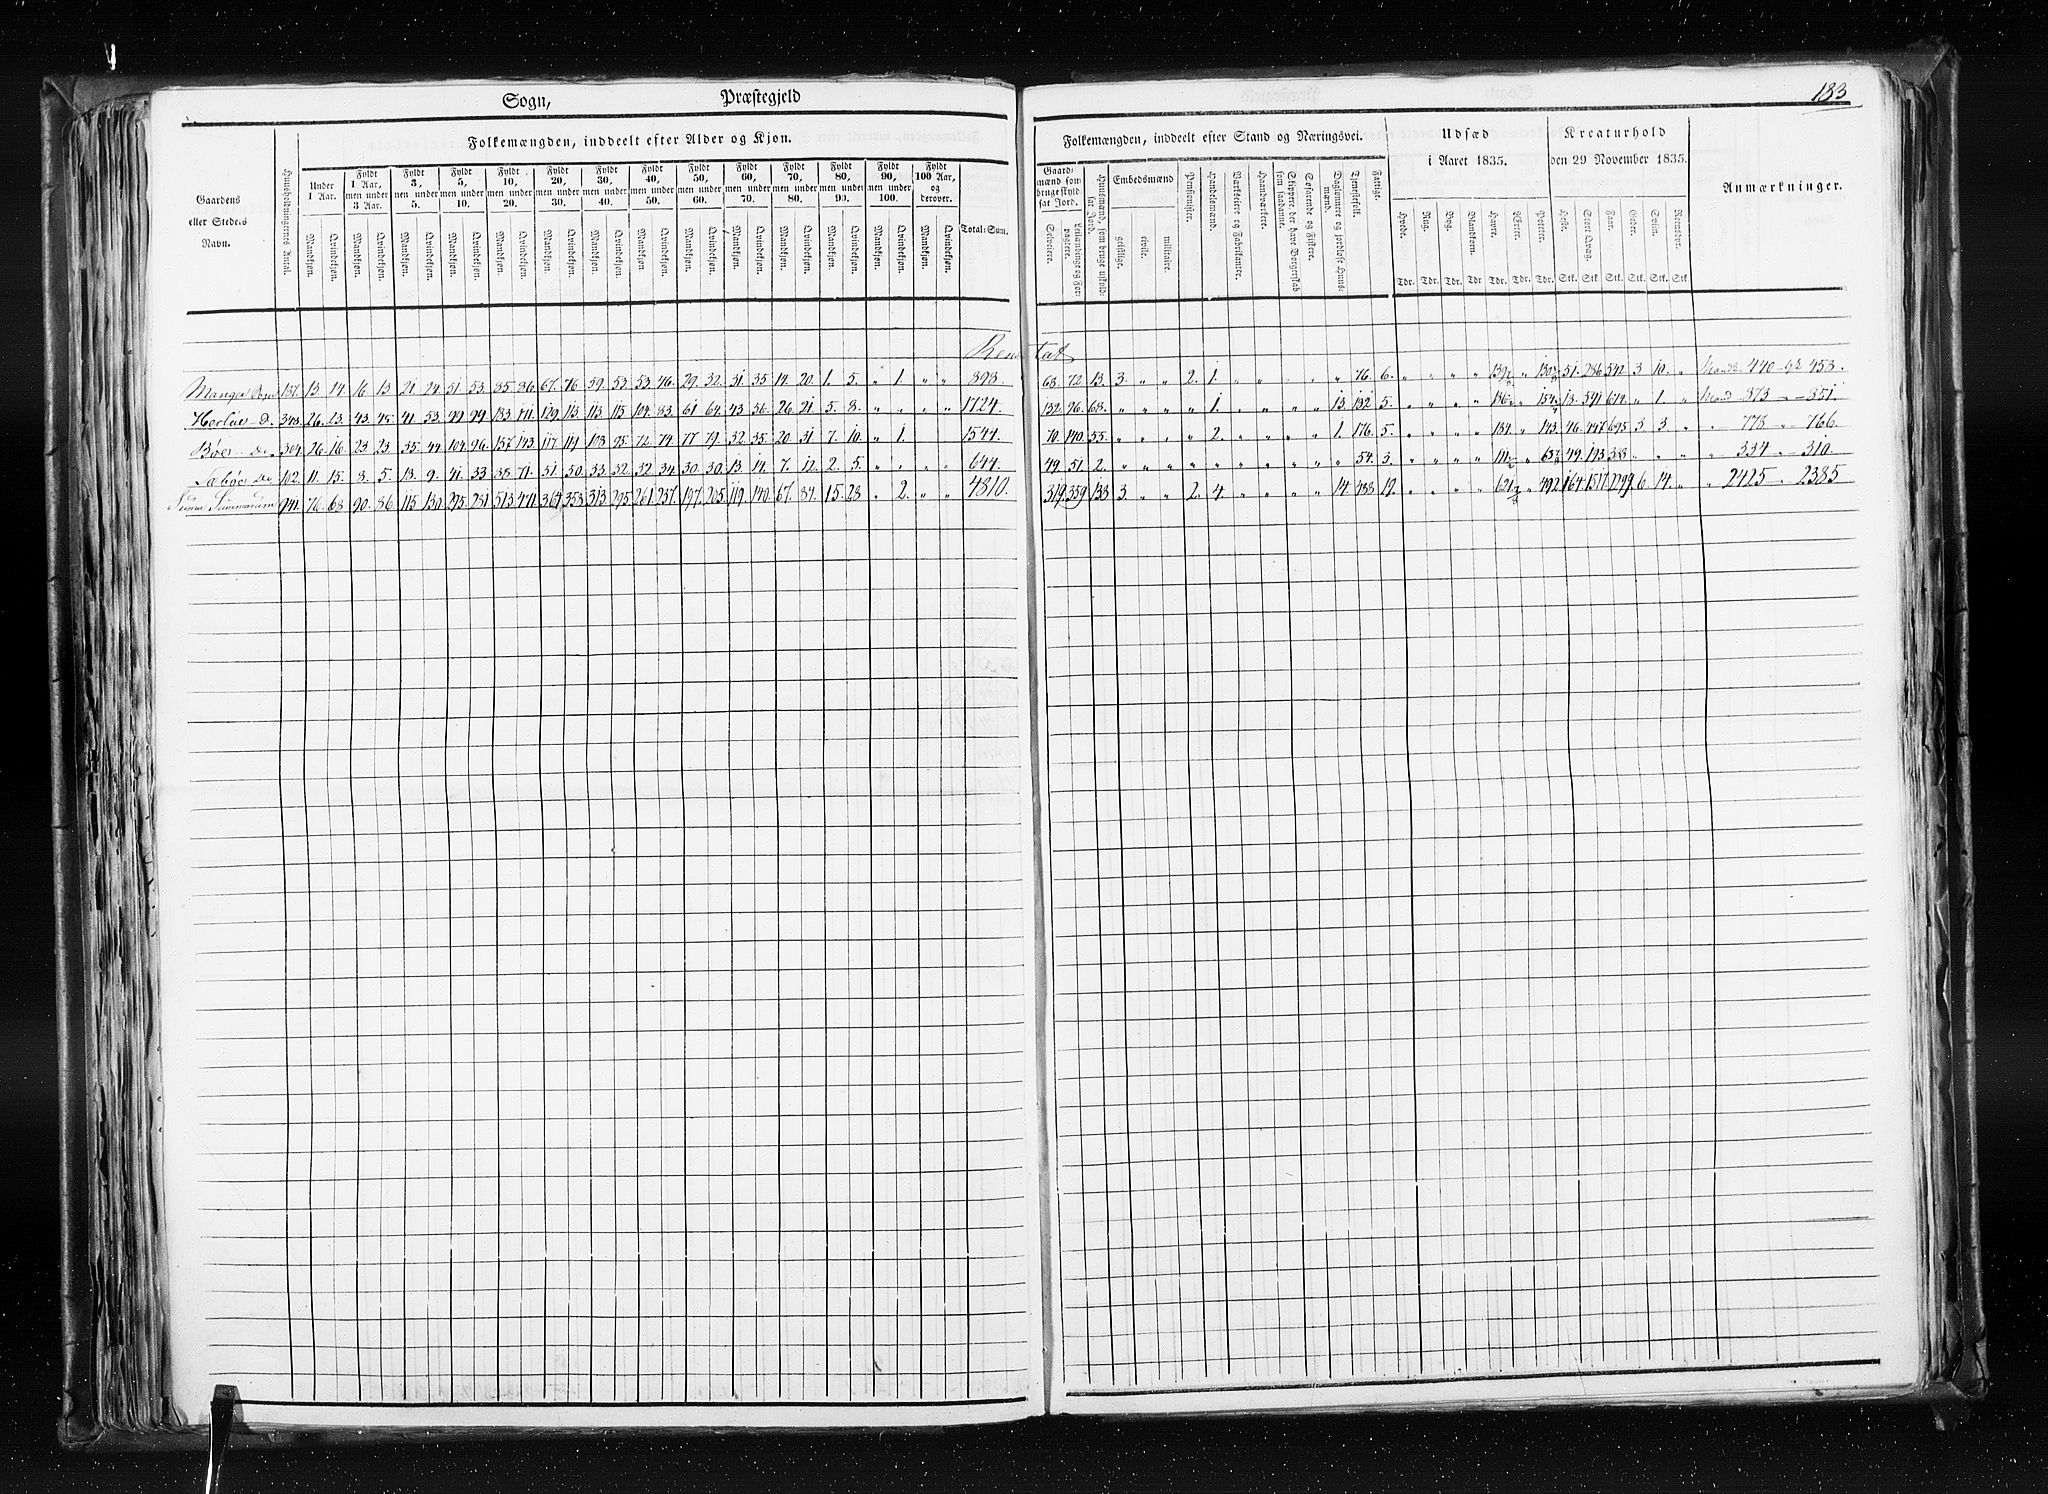 Sogn, Præstegjeld
183
Gaardens eller Stedets Navn.
Huusholdningernes Antal.
Folkemængden, inddeelt efter Alder og Kjøn.
Under 1 Aar.
Fyldt 1 Aar, men under 3 Aar.
Fyldt 3, men under 5.
Fyldt 5, men under 10.
Fyldt 10, men under 20.
Fyldt 20, men under 30.
Fyldt 30, men under 40.
Fyldt 40, men under 50.
Fyldt 50, men under 60.
Fyldt 60, men under 70.
Fyldt 70, men under 80.
Fyldt 80, men under 90.
Fyldt 90, men under 100.
Fyldt 100 Aar, og derover.
Mandkjøn. Qvindekjøn. Mandkjøn. Qvindekjøn. Mandkjøn. Qvindekjøn. Mandkjøn. Qvindekjøn. Mandkjøn. Qvindekjøn. Mandkjøn. Qvindekjøn. Mandkjøn. Qvindekjøn. Mandkjøn. Qvindekjøn. Mandkjøn. Qvindekjøn. Mandkjøn. Qvindekjøn. Mandkjøn. Qvindekjøn. Mandkjøn. Qvindekjøn. Mandkjøn. Qvindekjøn. Mandkjøn. Qvindekjøn.
Total-Sum.
Folkemængden, inddeelt efter Stand og Næringsvei.
Gaardmænd som bruge skyldsat Jord.
Selveiere.
Leilændinge og Forpagtere.
Huusmænd, som bruge skyldsat Jord.
Embedsmænd
geistlige. civile. militaire.
Pensionister.
Handelsmænd.
Værkseiere og Fabrikanter.
Haandværkere.
Skippere, der have Borgerskab som saadanne.
Søfarende og Fiskere.
Daglønnere og jordløse Huusmænd.
Tjenestefolk.
Fattige.
Udsæd i Aaret 1835.
Hvede. Rug. Byg. Blandkorn. Havre. Erter. Poteter.
Tdr. Tdr. Tdr. Tdr Tdr. Tdr. Tdr.
Kreaturhold den 29 November 1835.
Heste. Stort Qvæg. Faar. Geder. Sviin. Rensdyr.
Stk. Stk. Stk. Stk. Stk. Stk
Anmærkninger.
Manger 13. 14. 16. 13. 21. 24. 51. 53. 85. 86. 67. 76. 59. 53. 53. 46. 29. 32. 31. 35 14. 20. 1. 5. „ 1. „ „ 898. 68. 72. 13. 3. „ „ 2. 1. „ „ „ „ „ 76. 6. „ „ „ „ „ 51. 286 542 3 10. „ 440 453.
Herløe d. 343. 26. 23. 43. 45. 41. 53. 99. 99. 183. 171. 129. 113. 113 115 104. 83. 61 64. 43 56. 26. 21. 5. 8. „ „ „ „ 1724. 132. 96. 68. „ „ „ „ 1. „ „ „ „ 13. 132 5. „ „ „ „ „ 13. 591 674. „ 1. „ 873 851.
Bøe do 304. 26. 16. 23. 23. 35. 44. 104. 96. 157. 143. 117. 114. 108. 95. 72. 74. 77. 79. 32. 35. 20. 31. 7. 10. „ 1. „ „ 1544. 70. 140. 55. „ „ „ „ 2. „ „ „ „ 1. 176. 5. „ „ „ „ 184. „ 143. 46. 447 695 3 3 „ 778 766.
Sæbøe do 102. 11. 15. 8. 5. 18. 9. 41. 33. 88. 71. 51. 50. 33. 32. 32 34. 30. 30. 13 14. 7. 12. 2. 5. „ „ „ „ 644. 49. 51. 2. „ „ „ „ „ „ „ „ „ „ 54. 3. „ „ „ „ „ 49. 193 388 „ „ „ 334 310.
Summa Summarum 941. 76. 68. 90. 86. 115. 130. 295. 281. 513. 471. 364. 353. 313. 295. 261. 237. 197. 205. 119. 140. 67. 84. 15. 28. „ 2. „ „ 4810. 319. 359. 138. 3. „ „ 2. 4. „ „ „ „ 14. 438. 19. „ „ „ „ „ 492. 164. 1517. 2299. 6. 14. „ 2425 2385